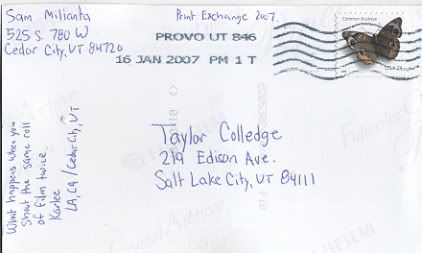 Sam Milianta
525 S. 780 W.
Cedar City, UT 84720
Print Exchange 2007.
PROVO UT 846
16 JAN 2007 PM 1 T
Common Buckeye
USA 24
Taylor Colledge
219 Edison Ave.
Salt Lake City, UT 84111
What happens when you
shoot the same roll
of film twice.
Karlee
LA, CA / Cedar City, UT
Crystal Archive
Fujicolor
FUJIFILM